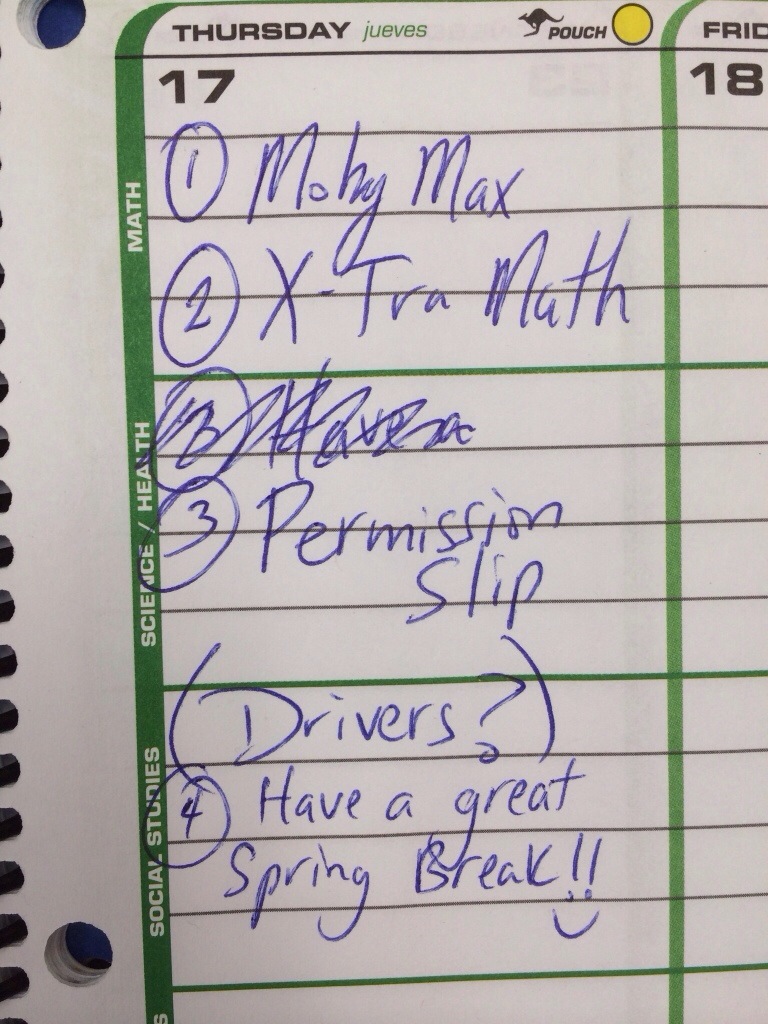 THURSDAY jueves POUCH FRID
17 18
MATH
① Moby Max
② X-Tra Math
SCIENCE / HEALTH
③ Have a
③ Permission
Slip
(Drivers?)
SOCIAL STUDIES
④ Have a great
Spring Break!!
S